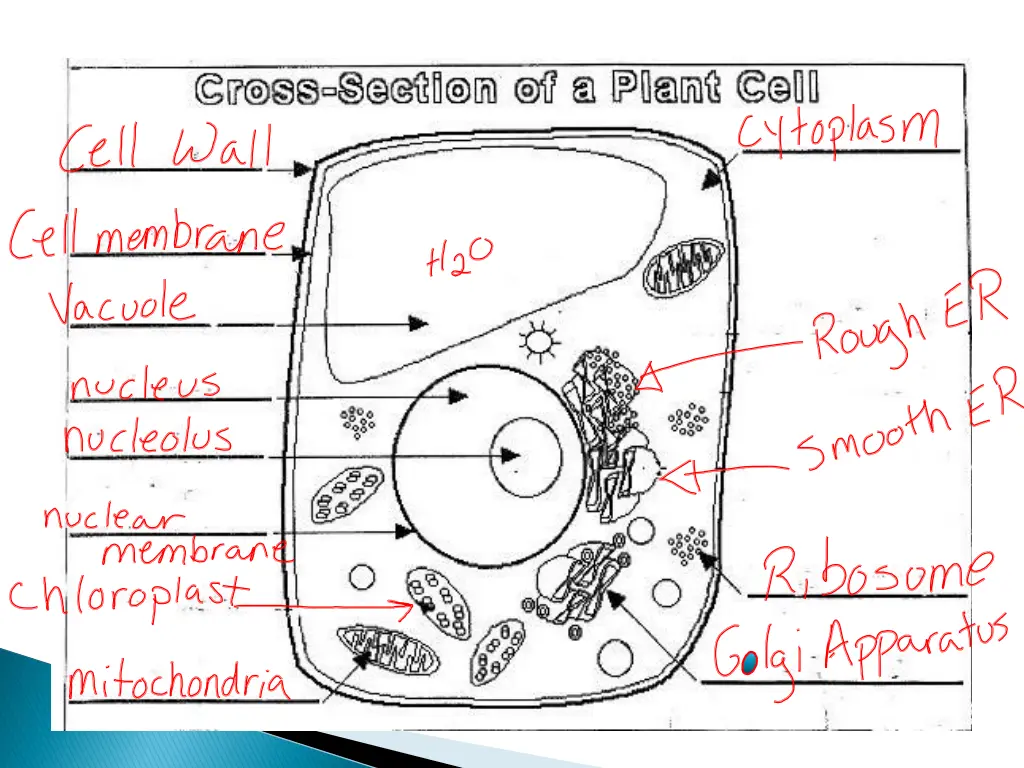 Cross-Section of a Plant Cell
Cell Wall
Cytoplasm
Cell membrane
H2O
Vacuole
Rough ER
nucleus
nucleolus
Smooth ER
nuclear
membrane
Chloroplast
Ribosome
Golgi Apparatus
Mitochondria